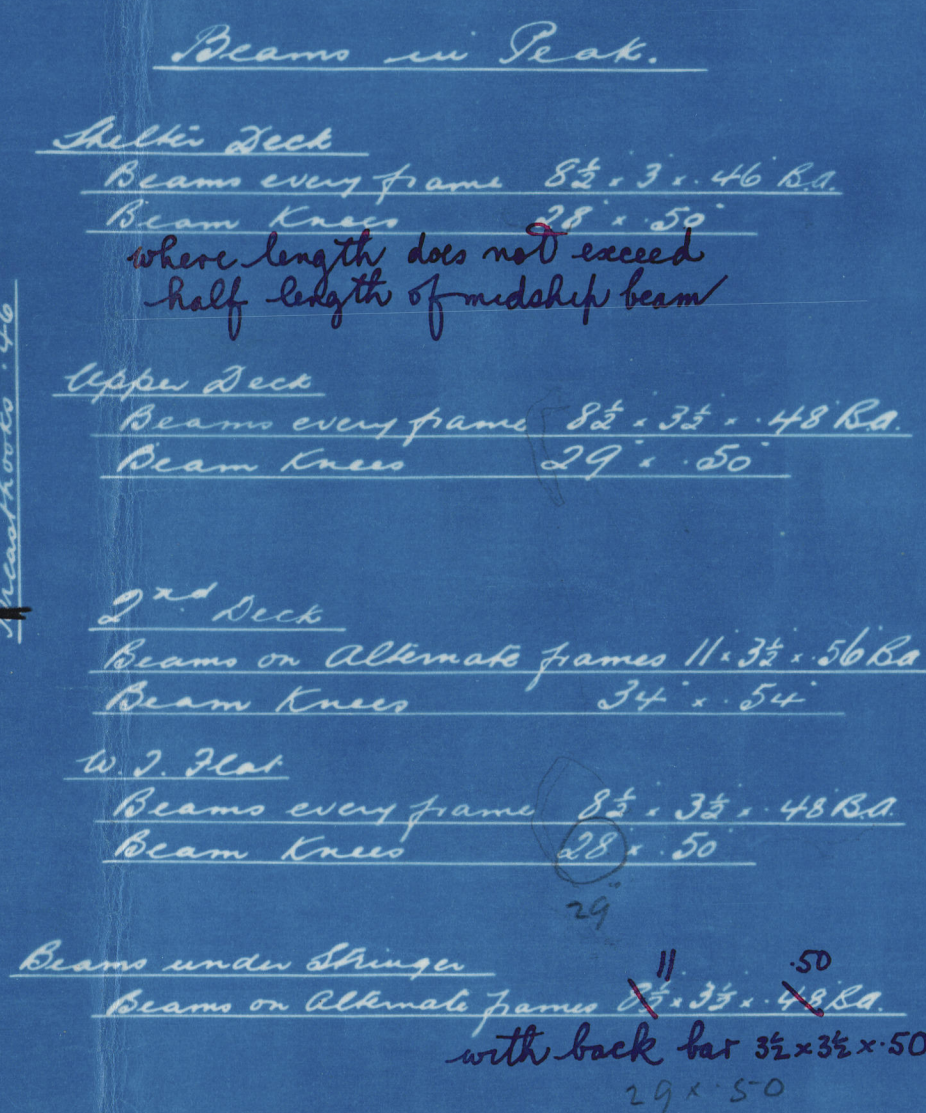 Beams in Peak.
Shelter Deck
Beams every frame 8½ × 3 × .46 B.A.
Beam Knees 28" × .50"
where length does not exceed
half length of midship beam
Upper Deck
Beams every frame 8½ × 3½ × .48 B.A.
Beam Knees 29" × .50"
2nd Deck
Beams on Alternate frames 11 × 3½ × .56 B.A
Beam Knees 34" × .54"
W.T. Flat
Beams every frame 8½ × 3½ × .48 B.A.
Beam Knees 28" × .50"
29"
Beams under Stringer
11 .50
Beams on Alternate frames 8½ × 3½ × .48 B.A.
with back bar 3½ × 3½ × .50
29 × .50
.46